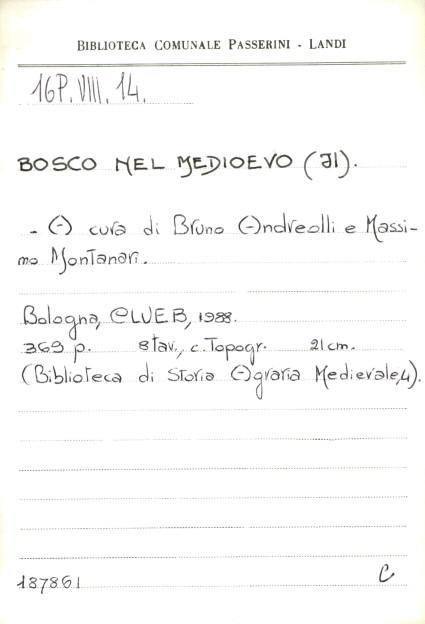 BIBLIOTECA COMUNALE PASSERINI - LANDI
16P. VIII. 14.
BOSCO NEL MEDIOEVO (Il).
- A cura di Bruno Andreolli e Massi-
mo Montanari.
Bologna, CLUEB, 1988.
369 p. 8 tav., c. Topogr. 21 cm.
(Biblioteca di Storia Agraria Medievale, 4).
187861 C